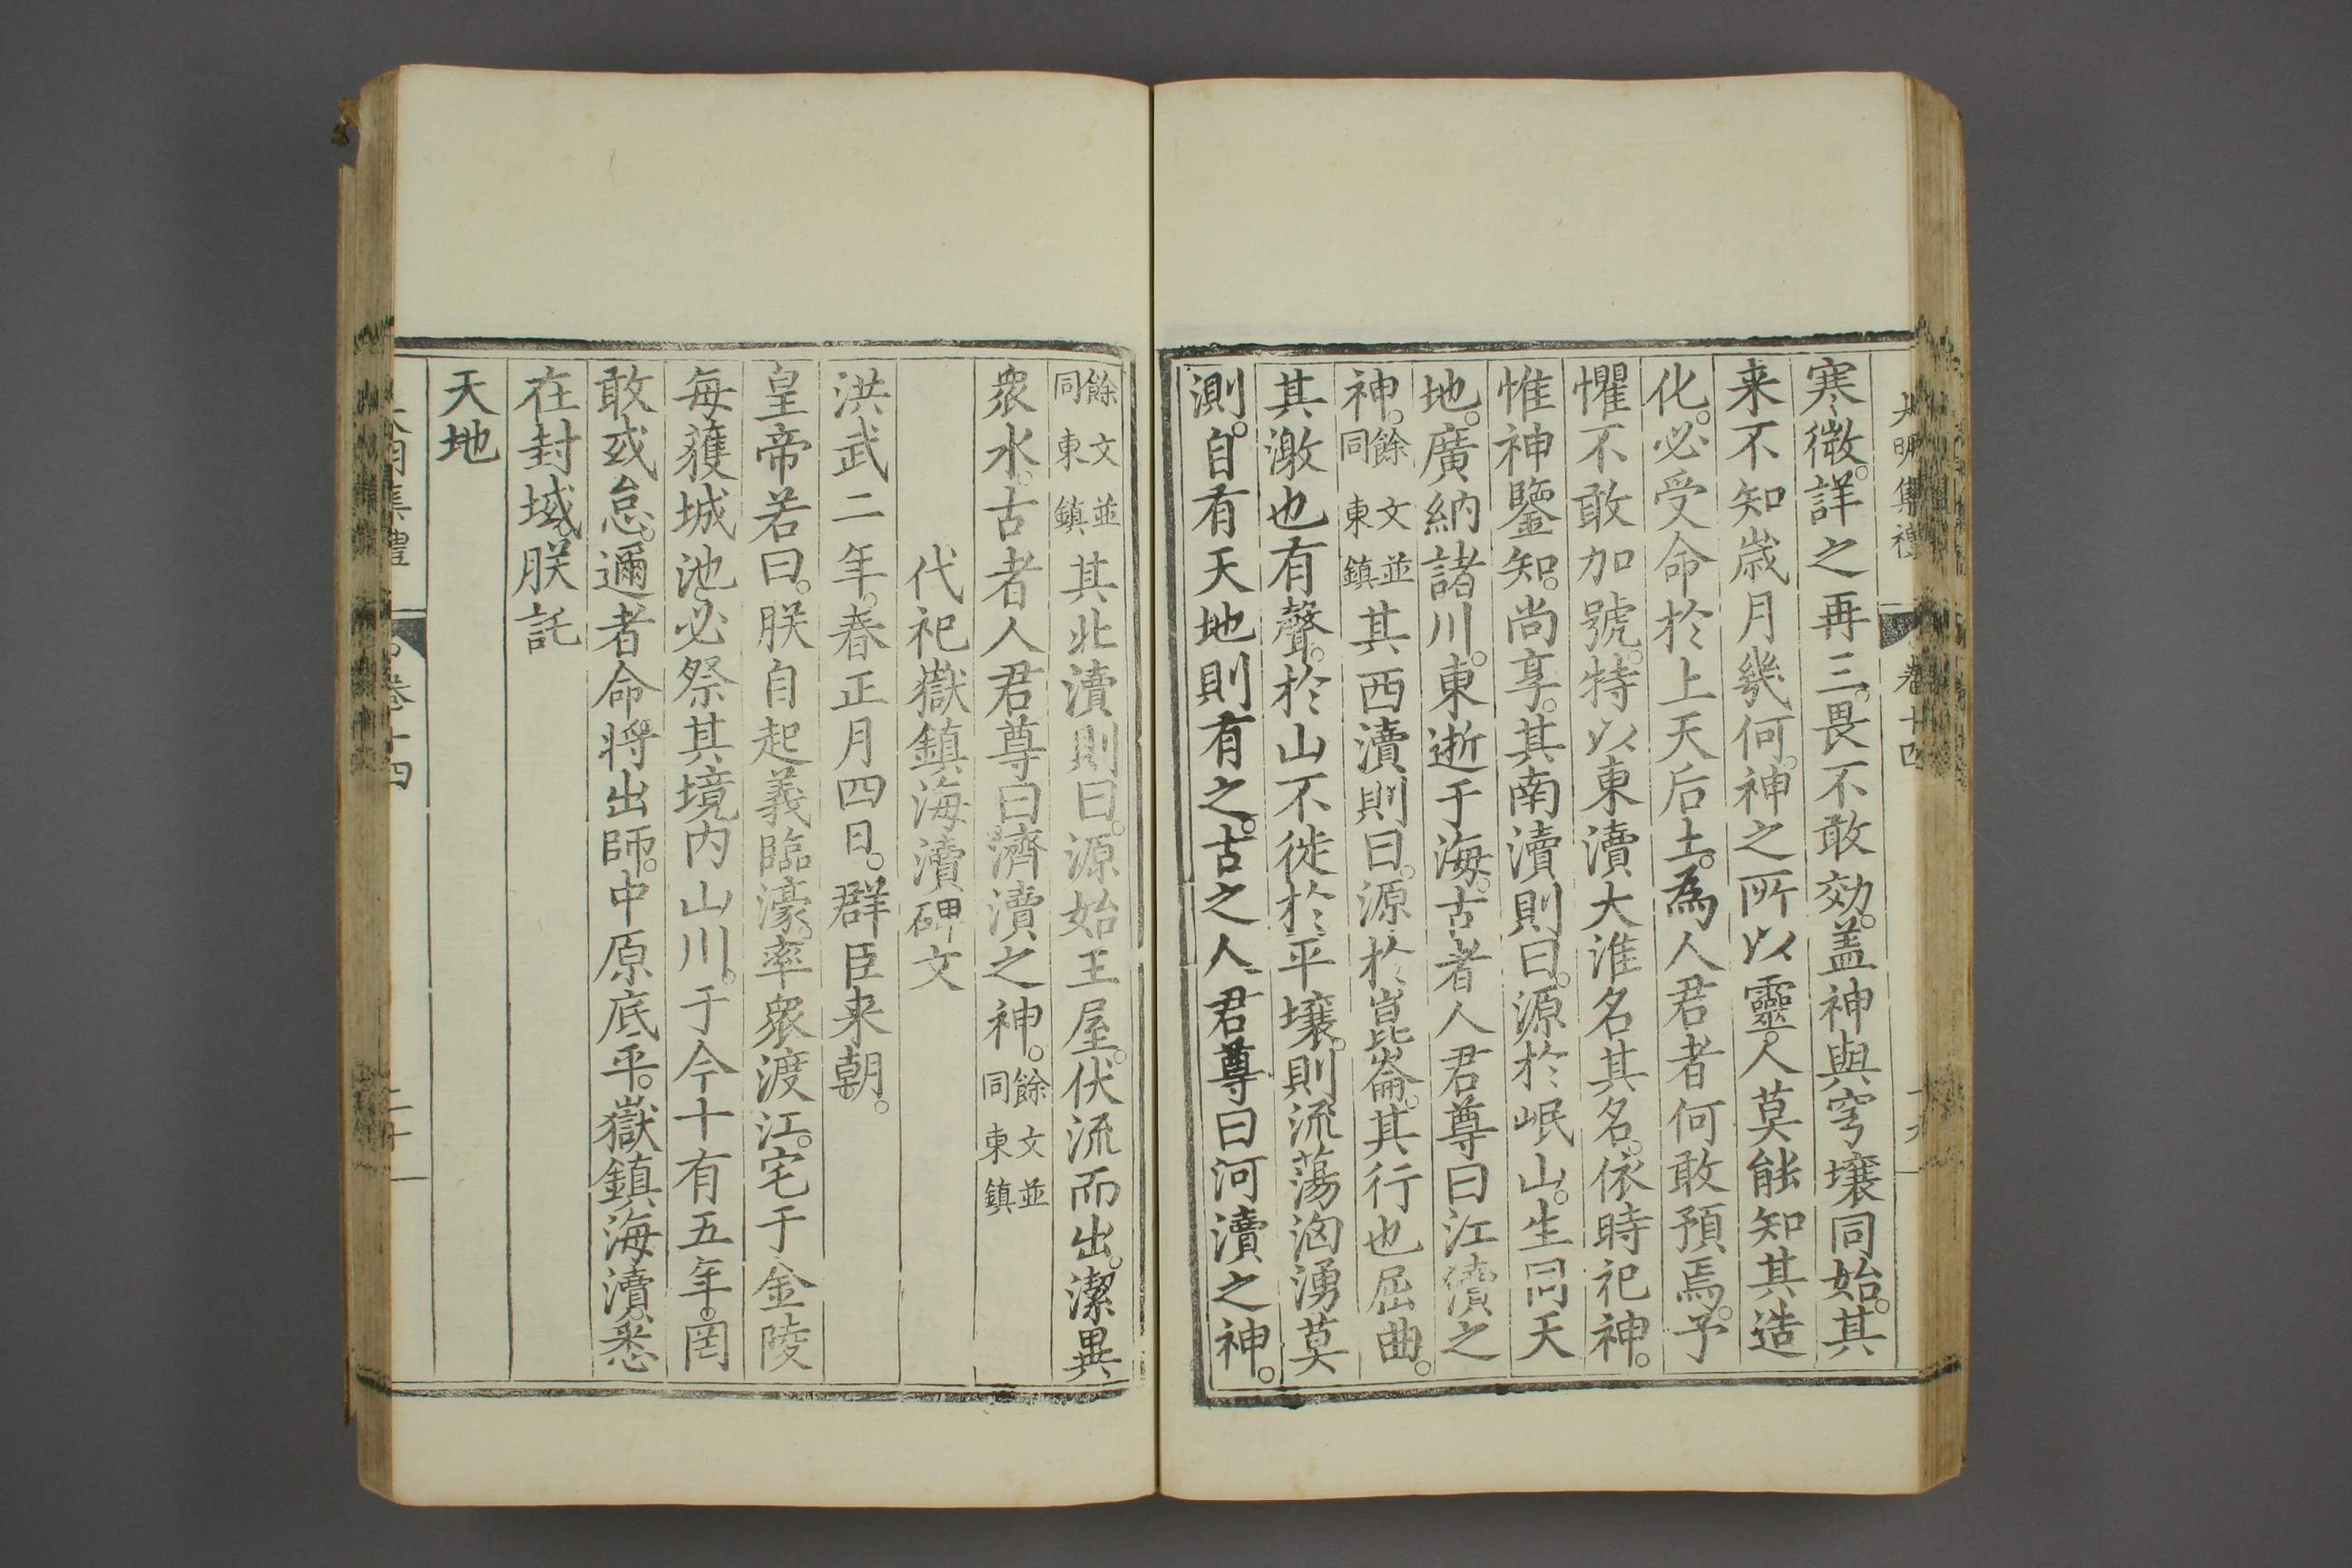 大明集禮 卷十四 十九
寒微。詳之再三。畏不敢効。盖神與穹壤同始。其
来不知歳月幾何。神之所以靈。人莫能知其造
化。必受命於上天后土。為人君者何敢預焉。予
懼不敢加號。特以東瀆大淮名其名。依時祀神。
惟神鑒知。尚享。其南瀆則曰。源於岷山。生同天
地。廣納諸川。東逝于海。古者人君尊曰江瀆之
神。餘文並同東鎮其西瀆則曰。源於崑崙。其行也屈曲。
其激也有聲。於山不徙於平壤。則流蕩洶湧莫
測。自有天地則有之。古之人君尊曰河瀆之神。
餘文並同東鎮其北瀆則曰。源始王屋。伏流而出。潔異
衆水。古者人君尊曰濟瀆之神。餘文並同東鎮
代祀嶽鎮海瀆碑文
洪武二年。春正月四日。群臣来朝。
皇帝若曰。朕自起義臨濠。率衆渡江。宅于金陵
每獲城池。必祭其境内山川。于今十有五年。罔
敢或怠。邇者命將出師。中原底平。嶽鎮海瀆。悉
在封域。朕託
天地
大明集禮 卷十四 二十